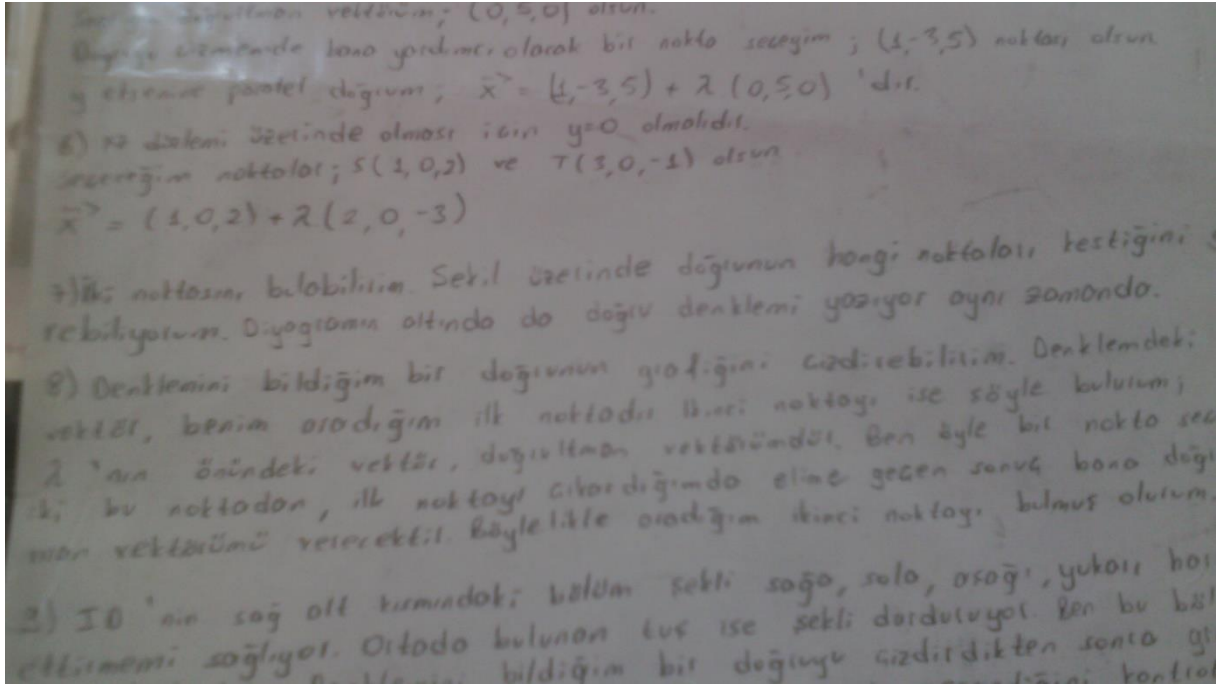 doğrultman vektörüm; (0,5,0) olsun.
çizmemde bana yardımcı olacak bir nokta seçeyim; (1,-3,5) noktası olsun
y eksenine paralel doğrum; x = (1,-3,5) + λ (0,5,0) 'dır.
6) xz düzlemi üzerinde olması için y=0 olmalıdır.
Seçeceğim noktalar; S(1,0,2) ve T(3,0,-1) olsun
x = (1,0,2) + λ(2,0,-3)
7) İki noktasını bulabilirim. Şekil üzerinde doğrunun hangi noktaları kestiğini
rebiliyorum. Diyagramın altında da doğru denklemi yazıyor aynı zamanda.
8) Denklemini bildiğim bir doğrunun grafiğini çizdirebilirim. Denklemdeki
vektör, benim aradığım ilk noktadır. İkinci noktayı ise şöyle bulurum;
λ 'nın önündeki vektör, doğrultman vektörümdür. Ben öyle bir nokta seç
ki bu noktadan, ilk noktayı çıkardığımda elime geçen sonuç bana doğr
man vektörümü verecektir. Böylelikle aradığım ikinci noktayı bulmuş olurum.
9) ID 'nin sağ alt kısmındaki bölüm şekli sağa, sola, aşağı, yukarı har
ettirmemi sağlıyor. Ortada bulunan tuş ise şekli durduruyor. Ben bu böl
bildiğim bir doğruyu çizdirdikten sonra